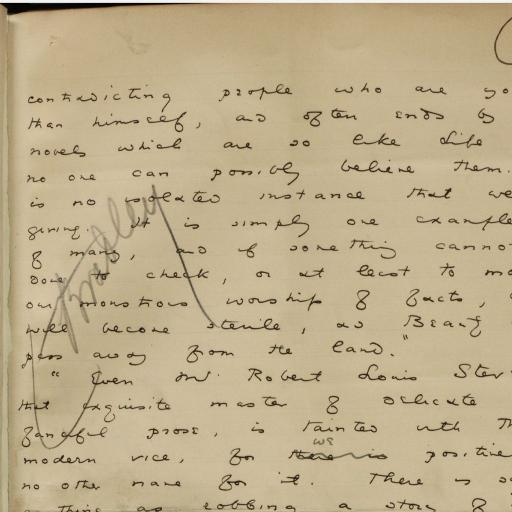 contradicting people who are yo
than himself, and often ends by
novels which are so like life
no one can possibly believe them.
is no isolated instance that we
giving. It is simply one example
of many, and if something cannot
done to check, or at least to mo
our monstrous worship of facts,
will become sterile, and Beauty
pass away from the land."
"Even Mr. Robert Louis Stev
that exquisite master of delicate
fanciful prose, is tainted with th
modern vice, for we there is positive
no other name for it. There is s
thing as robbing a story of